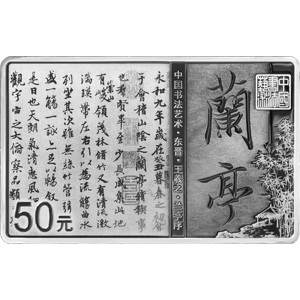 蘭亭
中国书法艺术·东晋·王羲之·兰亭序
永和九年歲在癸丑暮春之初會
于會稽山陰之蘭亭脩稧事
也羣賢畢至少長咸集此地
有崇山峻領茂林脩竹又有清流激
湍暎帶左右引以為流觴曲水
列坐其次雖無絲竹管弦之
盛一觴一詠亦足以暢叙
是日也天朗氣清惠風和
觀宇宙之大俯察品類
50元